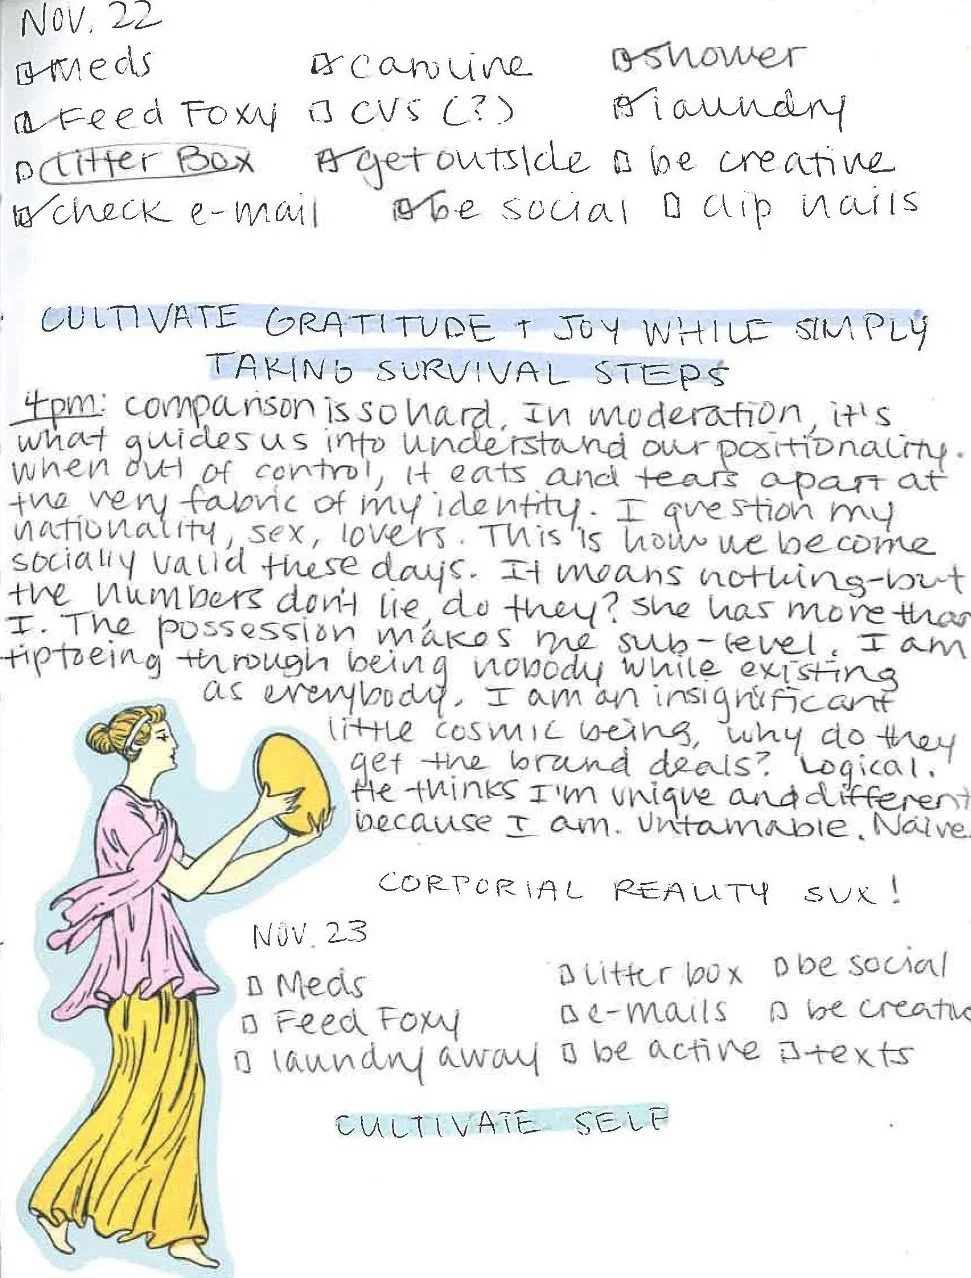 NOV. 22
Meds caroline shower
Feed Foxy CVS (?) laundry
Litter Box get outside be creative
check e-mail be social clip nails
CULTIVATE GRATITUDE + JOY WHILE SIMPLY
TAKING SURVIVAL STEPS
4pm: comparison is so hard. In moderation, it's
what guides us into understand our positionality.
When out of control, it eats and tears apart at
the very fabric of my identity. I question my
nationality, sex, lovers. This is how we become
socially valid these days. It means nothing-but
the numbers don't lie, do they? She has more than
I. The possession makes me sub-level. I am
tiptoeing through being nobody while existing
as everybody. I am an insignificant
little cosmic being, why do they
get the brand deals? Logical.
He thinks I'm unique and different
because I am. Untamable. Naive.
CORPORIAL REALITY SUX!
NOV. 23
Meds litter box be social
Feed Foxy e-mails be creativ
laundry away be active texts
CULTIVATE SELF